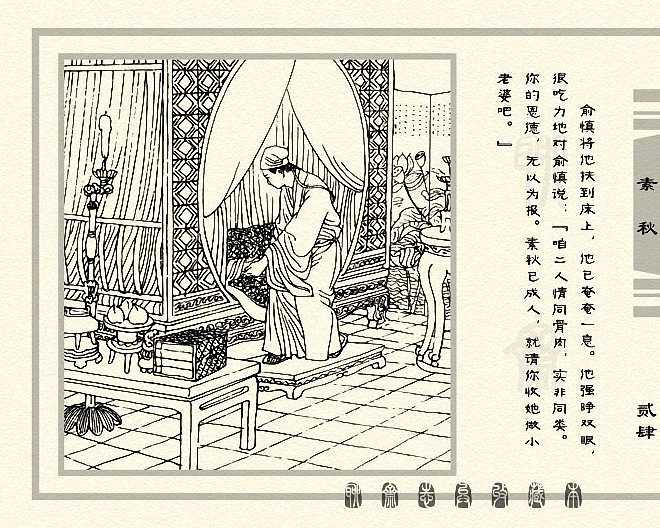 俞慎将他扶到床上，他已奄奄一息。他强睁双眼，
很吃力地对俞慎说：『咱二人情同骨肉，实非同类。
你的恩德，无以为报。素秋已成人，就请你收她做小
老婆吧。』
素秋
贰肆